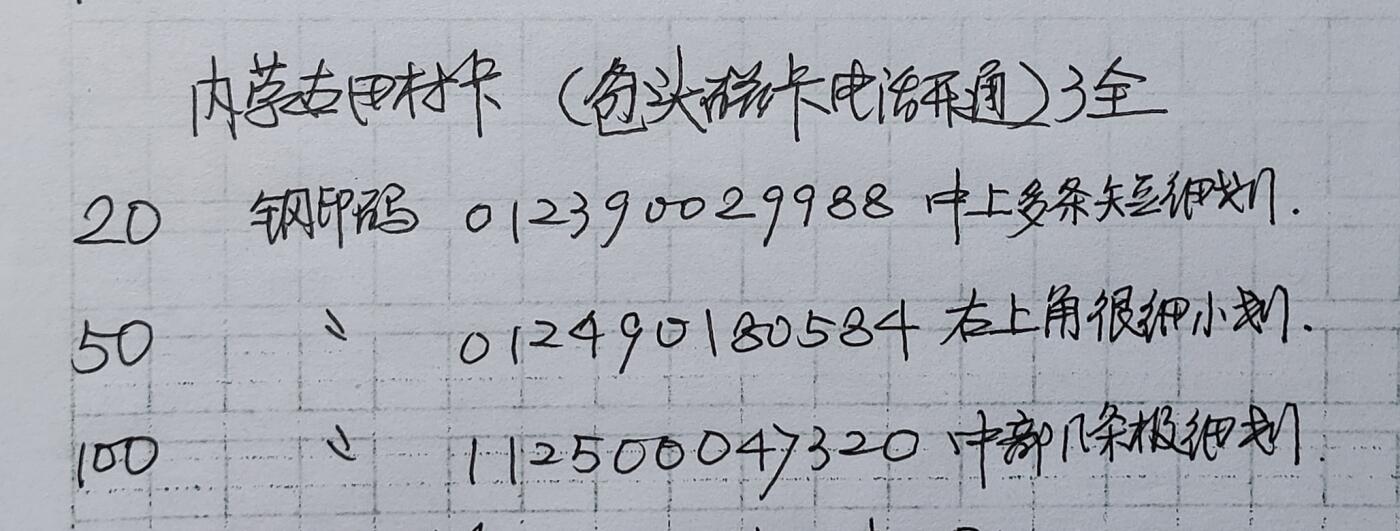 内蒙古田村卡（包头磁卡电话开通）3全
20 钢印码 012390029988 中上多条短细划.
50 〃 012490180584 右上角很细小划.
100 〃 112500047320 中部几条极细划.